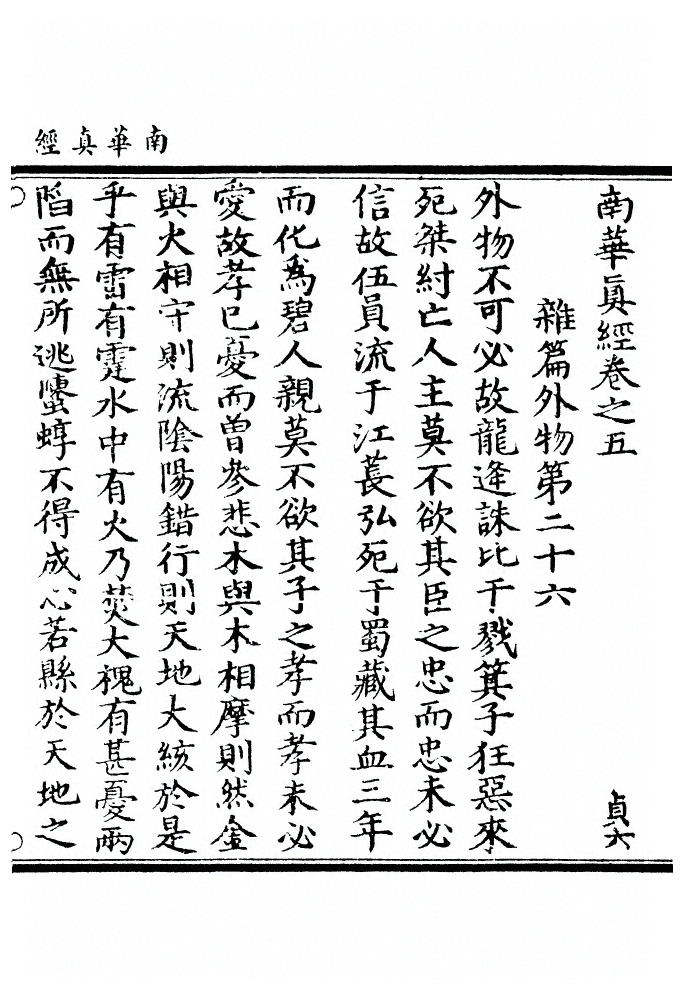 南華真經
南華眞經卷之五
貞六
雜篇外物第二十六
外物不可必故龍逄誅比干戮箕子狂惡來
死桀紂亡人主莫不欲其臣之忠而忠未必
信故伍員流于江萇弘死于蜀藏其血三年
而化爲碧人親莫不欲其子之孝而孝未必
愛故孝已憂而曾參悲木與木相摩則然金
與火相守則流陰陽錯行則天地大絯於是
乎有雷有霆水中有火乃焚大槐有甚憂兩
陷而無所逃螴蜳不得成心若縣於天地之